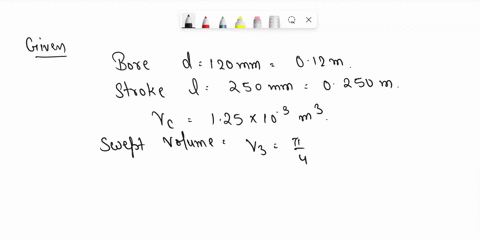 Given
Bore d = 120 mm = 0.12 m.
Stroke l = 250 mm = 0.250 m.
Vc = 1.25 × 10⁻³ m³.
Swept Volume = V3 = π/4